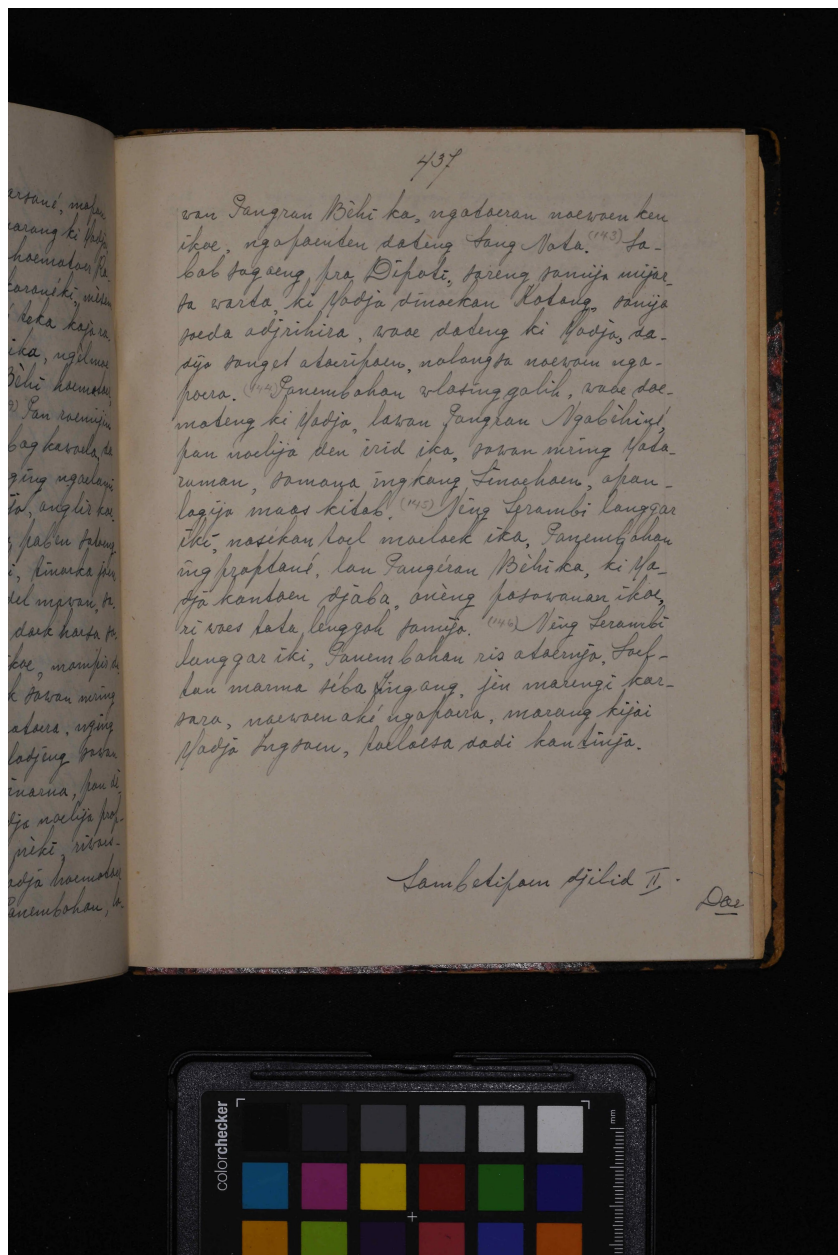 arsané, mapan
marang ki Yadja
haematoer, Ra-
karanéki, misan
teka kajara
ika, ngelmoe
Bèhi haematoer,
Pan raemijin
bag kawoela, da
ging ngaelangi
anglir kae
pabin sataeng
i, tinarka
del mawan, sa.
daek harsa sa.
ikae, mampir da
k sawan mring
ataera, nging
ladjeng sawan
inarna, pan di
dja naelija prap-
prèki, riwaes-
adja haematoer
Panembahan, la-
437
wan Pangran Bèhi ka, ngataeran naewaen ken
ikae, ngapaenten dateng Sang Nata. (143) Sa-
bab sagaeng, pra Dipati, sareng samija mijar-
sa warta, ki Yadja dinaekan Katong, samija
saeda adjrihira, waae dateng ki Yadja, da-
dija sanget ataeripaen, nalangsa naewaen nga-
paera. (144) Panembahan wlasing galih, waae dae-
mateng ki Yadja, lawan Pangran Ngabèhiné,
pan naelija den irid ika, sawan mring Mata-
raman, samana ingkang Sinaehaen, apan-
lagija maas kitab. (145) Ning Serambi langgar
iki, nasékan tael maelaek ika, Panembahan
ing praptané, lan Pangéran Bèhi ka, ki Ya-
dja kantaen djaba, anèng pasawanan ikae,
ri waes tata lenggah samija. (146) Ning Serambi
langgar iki, Panembahan ris ataernja, Saef-
tan marma séba Ingang, jen marengi kar-
sara, naewaen aké ngapaera, marang kijai
Yadja Ingsaen, taelaesa dadi kantinja.
Sambetipaen djilid II.
Dae